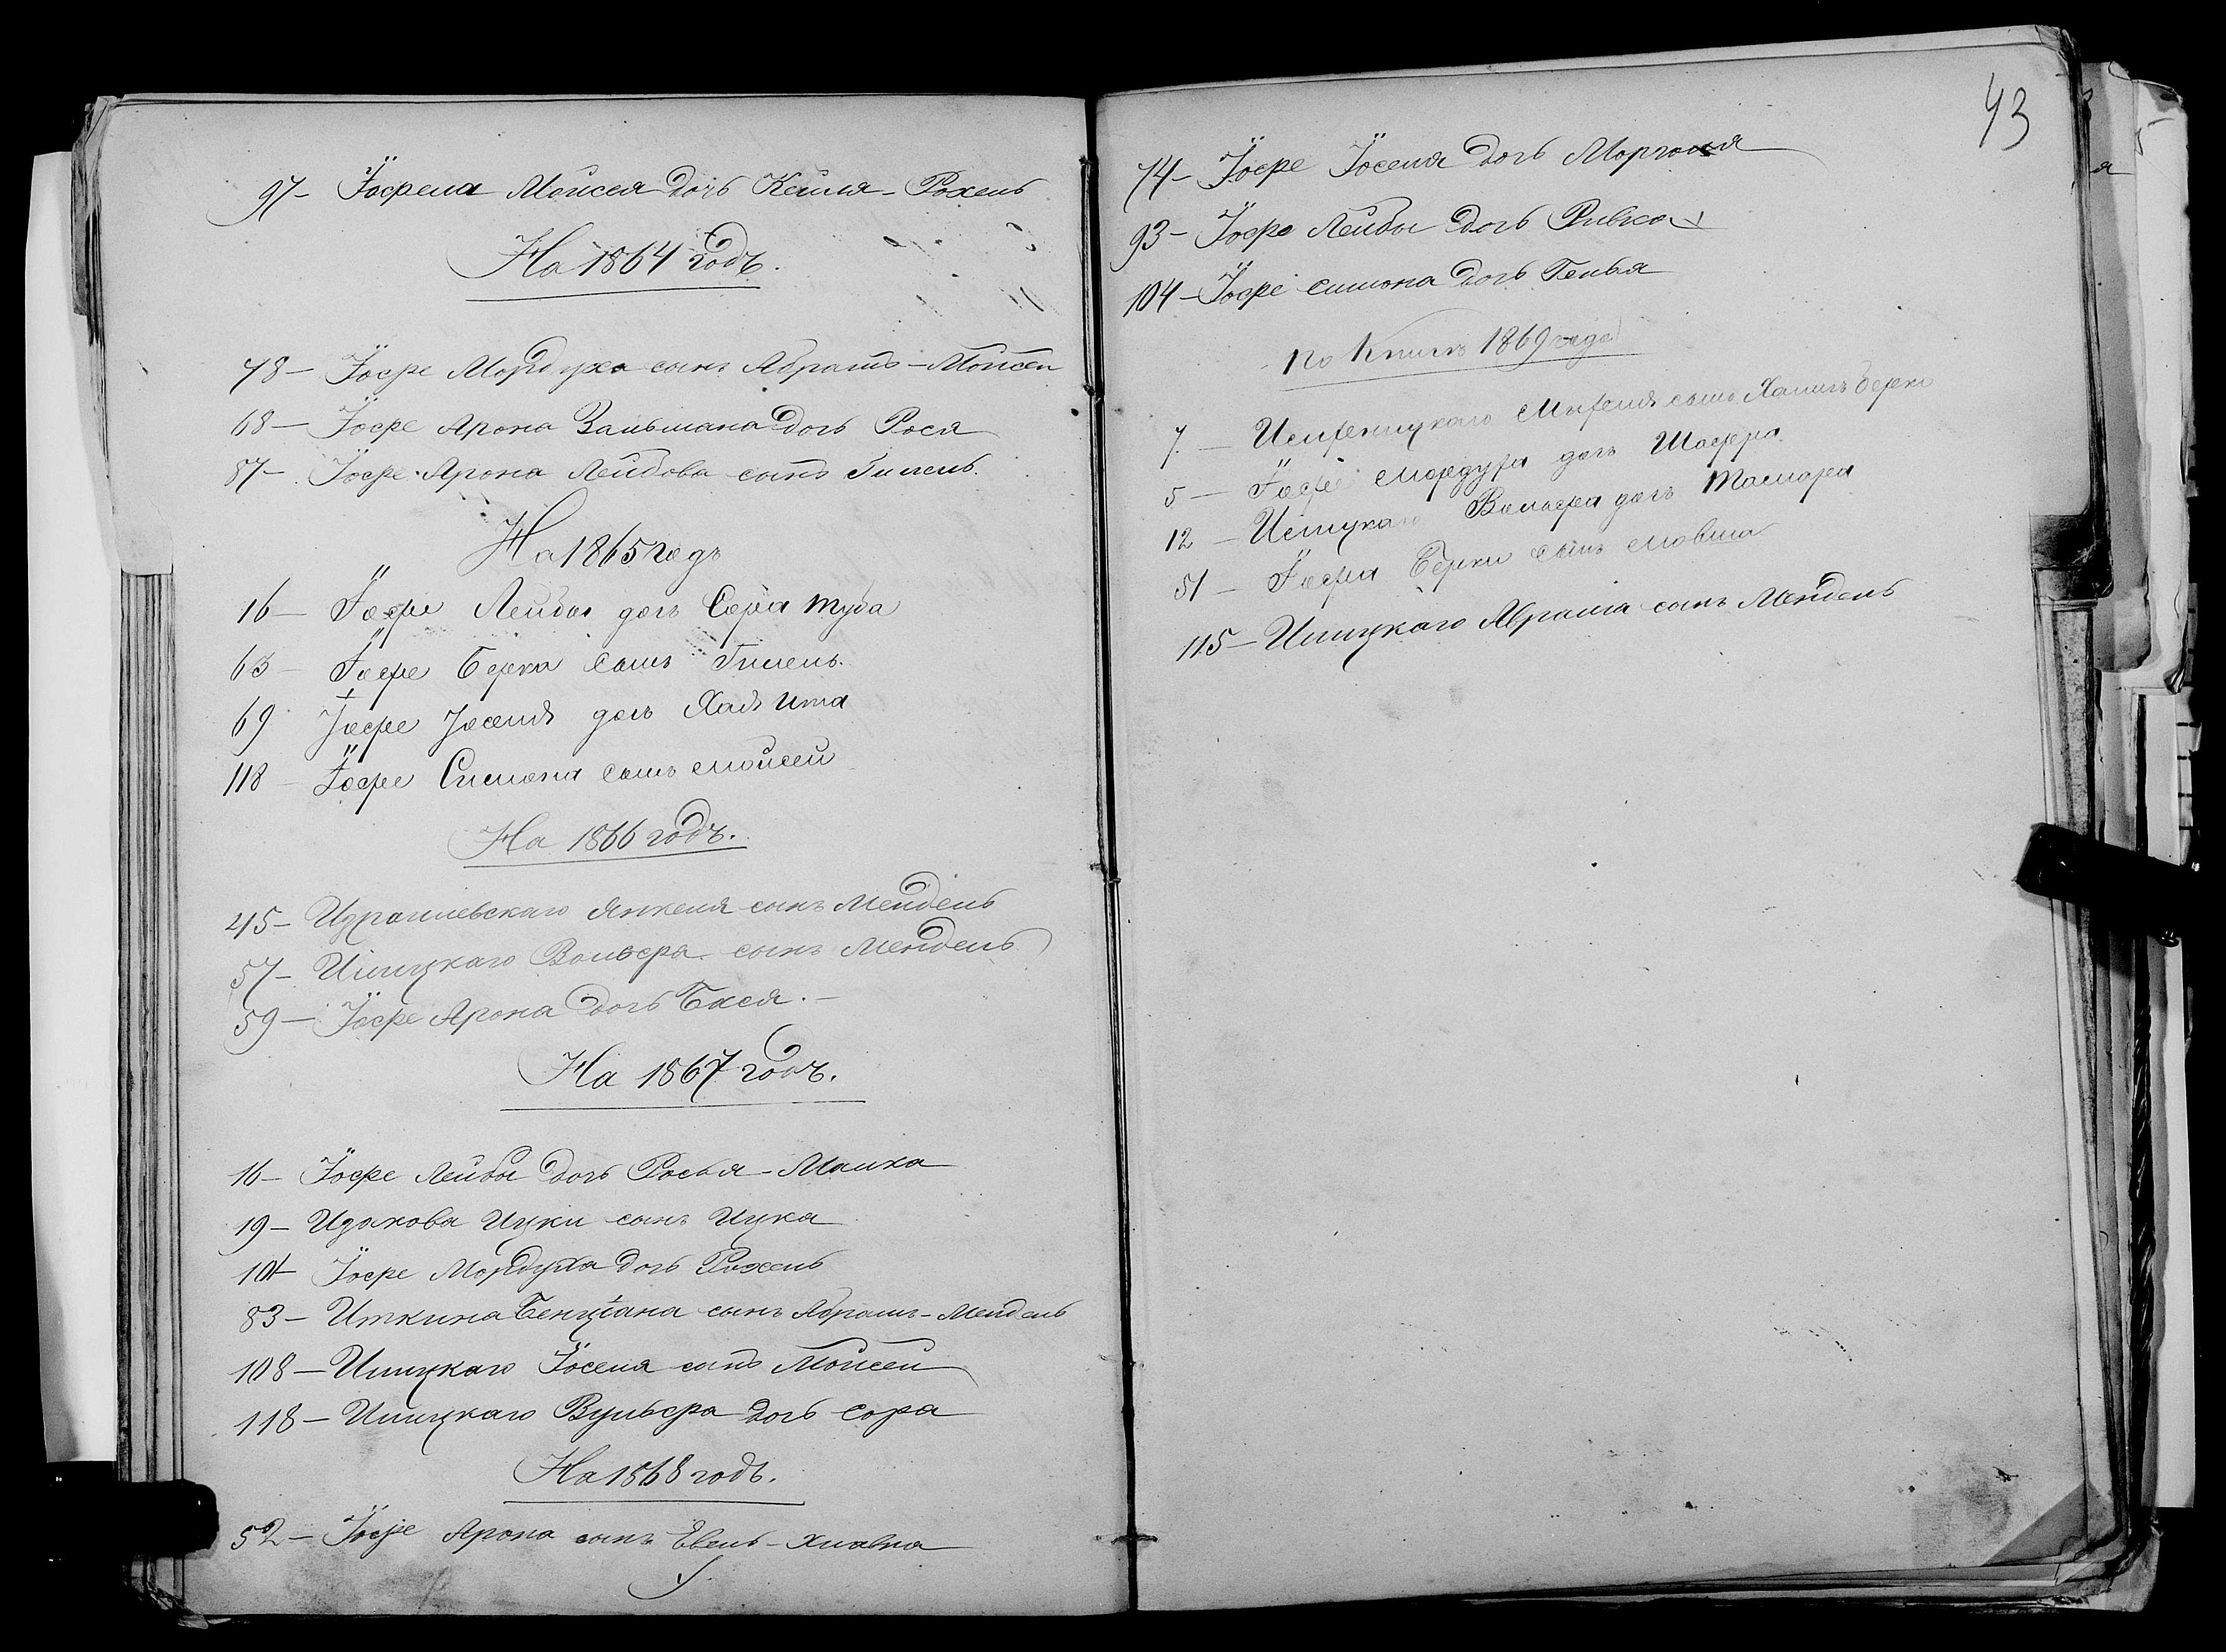 97 – Іофела Мойсея дочь Кейля – Рохель
На 1864 годъ.
48 – Іофе Мордуха сынъ Абрамъ – Мойсей
68 – Іофе Арона Зальмана дочь Рося
87 – Іофе Арона Лейбова сынъ Гилель.
На 1865 годъ
16 – Іофе Лейбы дочь Сора Туба
63 – Іофе Берка сынъ Гилель.
69 Іофе Іоселя дочь Ита
118 – Іофе Симона сынъ Мойсей
На 1866 годъ.
45 – Израилевскаго Янкеля сынъ Мендель
57 – Ишицкаго Вольфа сынъ Мендель
59 – Іофе Арона дочь Бася. –
На 1867 годъ.
16 – Іофе Лейбы дочь Росья – Малка
19 – Изакова Ицки сынъ Ицка
101 Іофе Мордуха дочь Рохель
83 – Иткина Бенціана сынъ Абрамъ – Мендель
108 – Ишицкаго Іоселя сынъ Мойсей
118 – Ишицкаго Вульфа дочь Сора
На 1868 годъ.
52 – Іофе Арона сынъ
43
74 – Іофе Іоселя дочь
93 – Іофе Лейбы дочь Ривка
104 – Іофе Симона дочь Генья
по Книгѣ 1869 года
7. – сынъ Берка
5 – Іофе Мордуха дочь Шифра
12 – Вольфа дочь Тамара
51 – Іофа Берки сынъ Мовша
115 – Ишицкаго Абрама сынъ Мендель